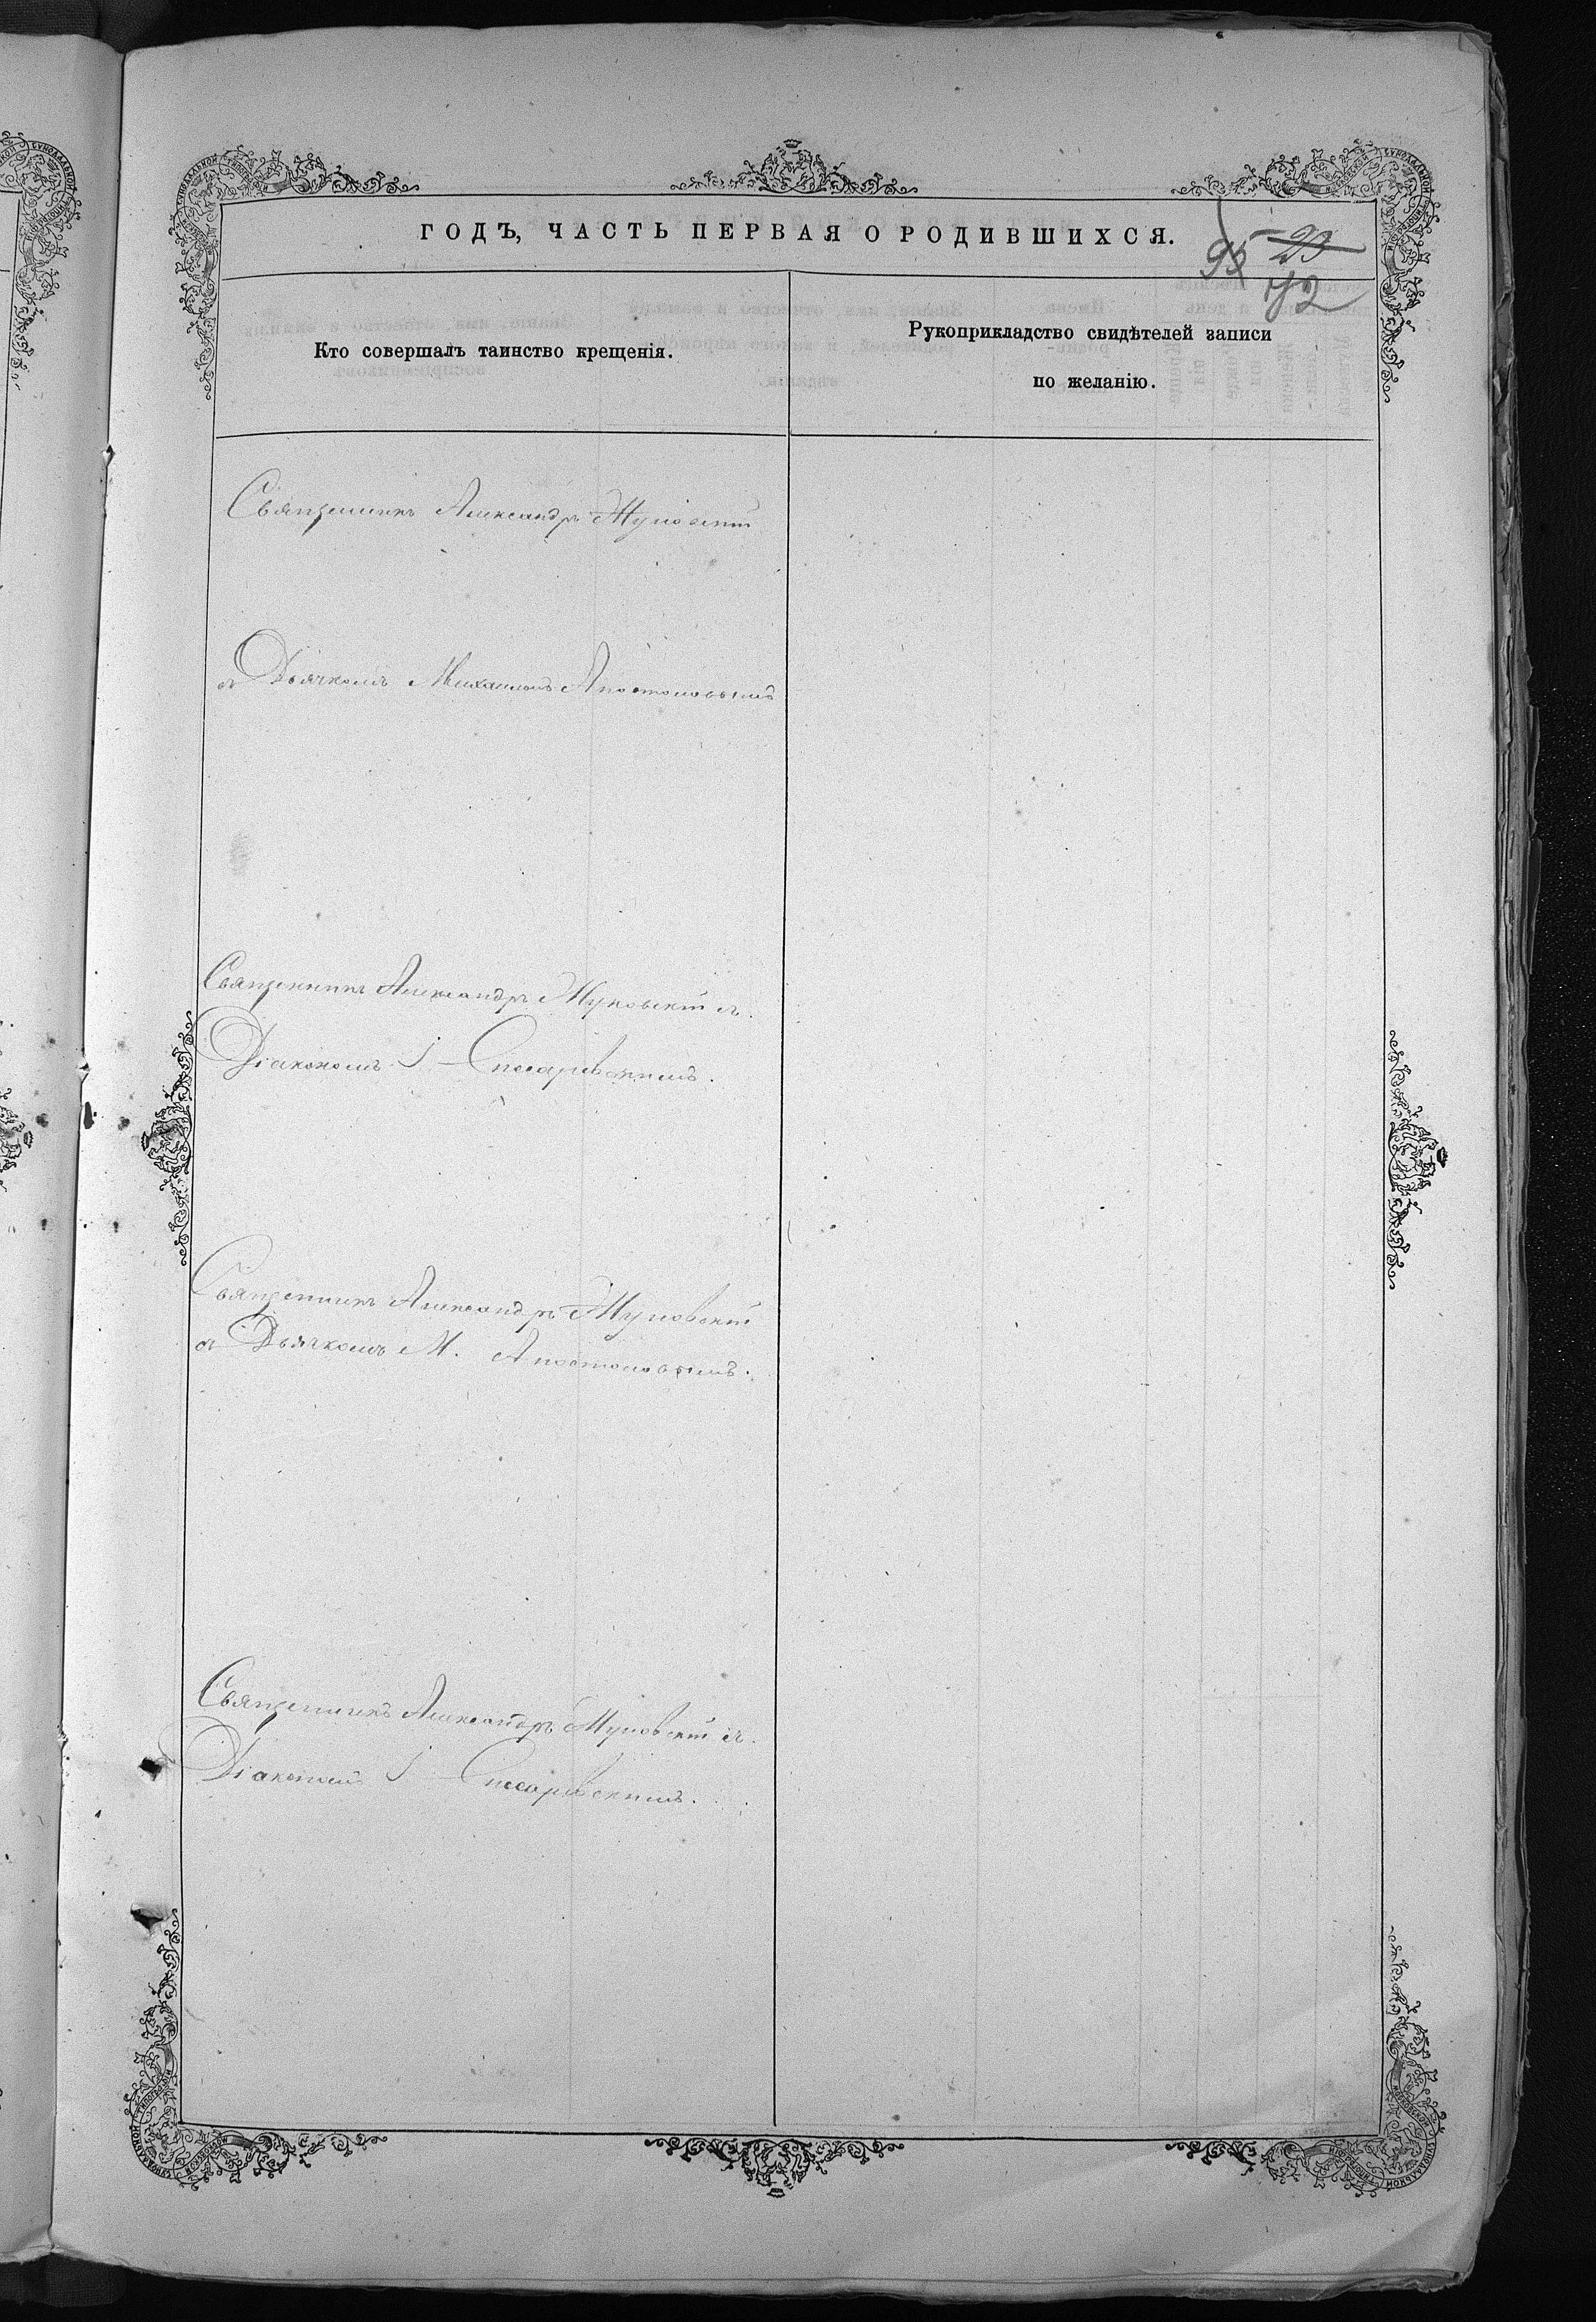 ГОДЪ, ЧАСТЬ ПЕРВАЯ О РОДИВШИХСЯ.
95 23
42
Кто совершалъ таинство крещенія.
Рукоприкладство свидѣтелей записи
по желанію.
Священникъ Александръ Жуковскій
съ Дьячкомъ Михаиломъ Апостоловымъ
Священникъ Александръ Жуковскій съ
Діакономъ І Слюсаревскимъ.
Священникъ Александръ Жуковскій
съ Дьячкомъ М. Апостоловымъ.
Священникъ Александръ Жуковскій съ
Діакономъ І Слюсаревскимъ.